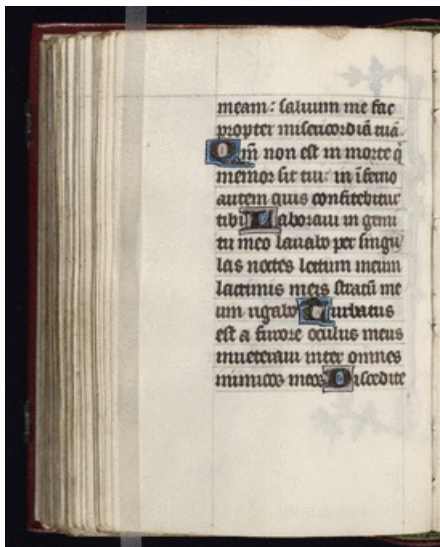 meam: saluum me fac
propter misericordiã tuã.
Qm̃ non est in morte q̃
memor sit tui: in ĩferno
autem quis confitebitur
tibi Laboraui in gemi
tu meo lauabo per singu
las noctes lectum meum
lacrimis meis stratũ me
um rigabo Turbatus
est a furore oculus meus
inueteraui inter omnes
inimicos meos Discedite